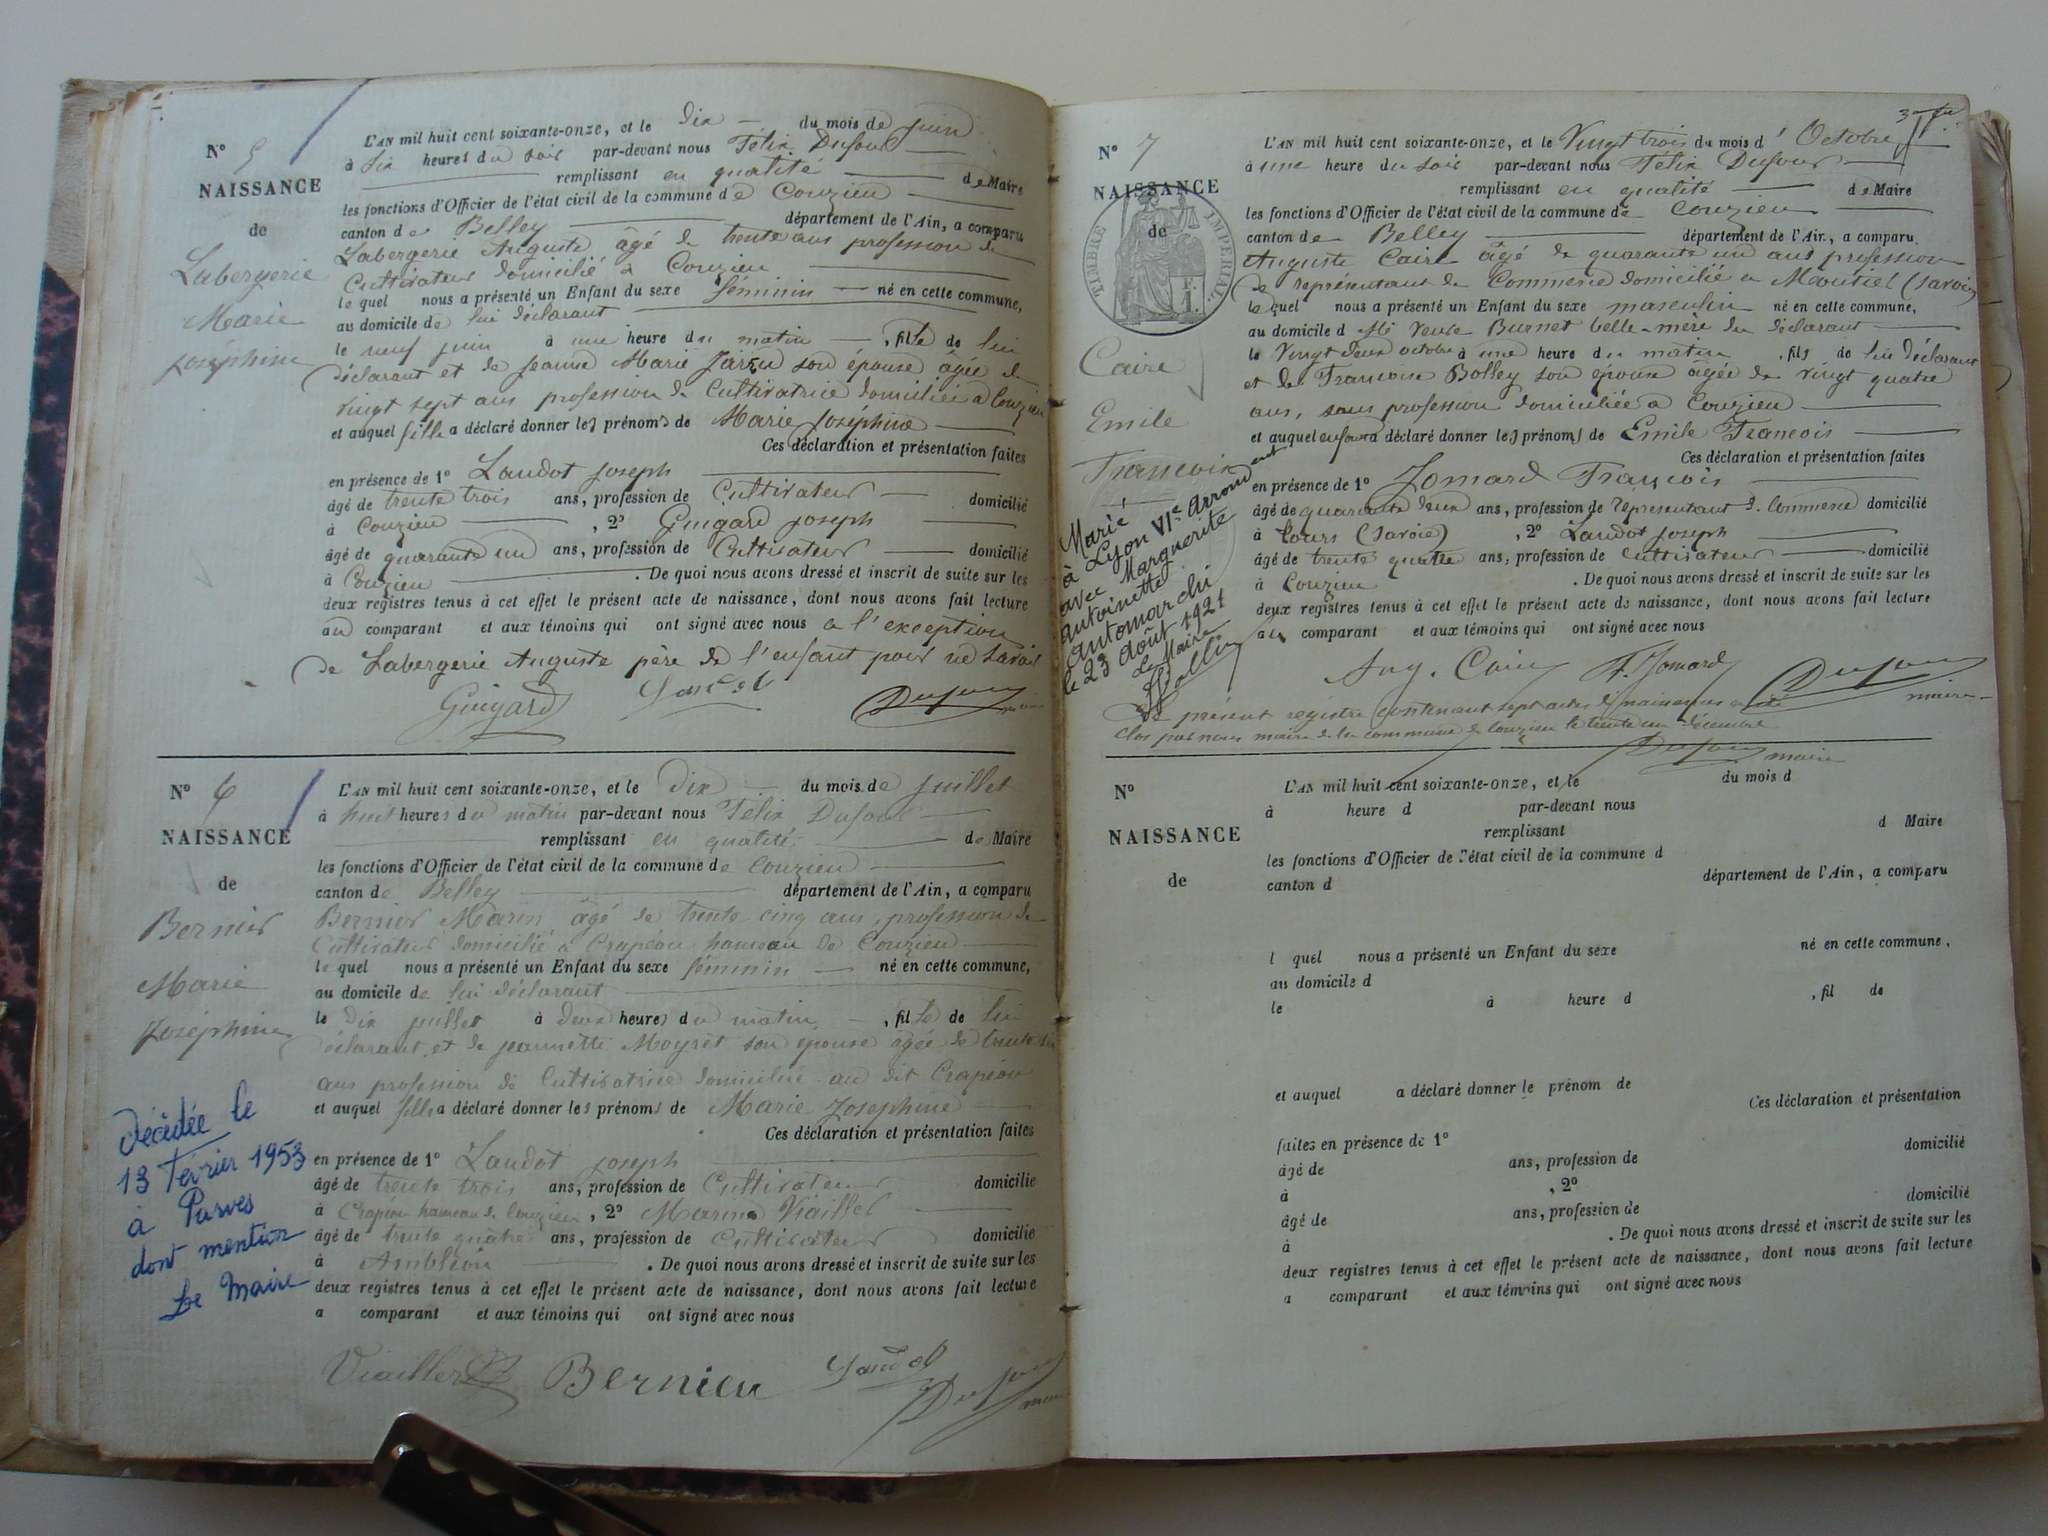 N° 5
NAISSANCE
de
Labergerie
Marie
Joséphine
L'AN mil huit cent soixante-onze, et le dix du mois de juin
à six heures du soir par-devant nous Félix Dufour
remplissant en qualité de Maire
les fonctions d'Officier de l'état civil de la commune de Couzieu
canton de Belley département de l'Ain, a comparu
Labergerie Auguste âgé de trente ans profession de
Cultivateur domicilié à Couzieu
le quel nous a présenté un Enfant du sexe féminin né en cette commune,
au domicile de lui déclarant
le neuf juin à une heure du matin, fille de lui
déclarant et de Jeanne Marie son épouse âgée de
vingt sept ans profession de Cultivatrice domiciliée à Couzieu
et auquel fille a déclaré donner les prénoms de Marie Joséphine
Ces déclaration et présentation faites
en présence de 1° Landot Joseph
âgé de trente trois ans, profession de Cultivateur domicilié
à Couzieu, 2° Guigard Joseph
âgé de quarante un ans, profession de Cultivateur domicilié
à Couzieu. De quoi nous avons dressé et inscrit de suite sur les
deux registres tenus à cet effet le présent acte de naissance, dont nous avons fait lecture
au comparant et aux témoins qui ont signé avec nous a l'exception
de Labergerie Auguste père de l'enfant pour ne savoir
Guigard Landot Dufour maire
N° 6
NAISSANCE
de
Bernier
Marie
Joséphine
Décédée le
13 Février 1953
à Parves
dont mention
Le Maire
L'AN mil huit cent soixante-onze, et le dix du mois de juillet
à huit heures du matin par-devant nous Félix Dufour
remplissant en qualité de Maire
les fonctions d'Officier de l'état civil de la commune de Couzieu
canton de Belley département de l'Ain, a comparu
Bernier Marin âgé de trente cinq ans, profession de
Cultivateur domicilié à Crapéou hameau de Couzieu
le quel nous a présenté un Enfant du sexe féminin né en cette commune,
au domicile de lui déclarant
le dix juillet à deux heures du matin, fille de lui
déclarant et de Jeannette Moyret son épouse âgée de trente
ans profession de Cultivatrice domiciliée au dit Crapéou
et auquel fille a déclaré donner les prénoms de Marie Joséphine
Ces déclaration et présentation faites
en présence de 1° Landot Joseph
âgé de trente trois ans, profession de Cultivateur domicilié
à Crapéou hameau de Couzieu, 2° Marin Viallet
âgé de trente quatre ans, profession de Cultivateur domicilié
à Ambléon. De quoi nous avons dressé et inscrit de suite sur les
deux registres tenus à cet effet le présent acte de naissance, dont nous avons fait lecture
a comparant et aux témoins qui ont signé avec nous
Bernier Landot Dufour maire
N° 7
NAISSANCE
de
TIMBRE IMPÉRIAL
F. 1.
Caire
Emile
François
Marié
à Lyon VIe Arrondissement
avec Marguerite
Antoinette
Antomarchi
le 23 Août 1921
Le Maire
L'AN mil huit cent soixante-onze, et le Vingt trois du mois d'Octobre
à une heure du soir par-devant nous Félix Dufour
remplissant en qualité de Maire
les fonctions d'Officier de l'état civil de la commune de Couzieu
canton de Belley département de l'Ain, a comparu
Auguste Caire âgé de quarante un ans profession
de représentant de Commerce domicilié à Moutiel (Savoie)
le quel nous a présenté un Enfant du sexe masculin né en cette commune,
au domicile d Me Veuve Burnet belle-mère du déclarant
le Vingt deux octobre à une heure du matin, fils de lui déclarant
et de Françoise Bolley son épouse âgée de vingt quatre
ans, sans profession domiciliée à Couzieu
et auquel enfant a déclaré donner les prénoms de Emile François
Ces déclaration et présentation faites
en présence de 1° Jomard François
âgé de quarante deux ans, profession de représentant de Commerce domicilié
à Tours (Savoie), 2° Landot Joseph
âgé de trente quatre ans, profession de Cultivateur domicilié
à Couzieu. De quoi nous avons dressé et inscrit de suite sur les
deux registres tenus à cet effet le présent acte de naissance, dont nous avons fait lecture
au comparant et aux témoins qui ont signé avec nous
Aug. Caire F. Jomard Dufour maire
Le présent registre contenant sept actes de naissances a été
clos par nous maire de la commune de Couzieu le trente un décembre
Dufour maire
N°
NAISSANCE
de
L'AN mil huit cent soixante-onze, et le du mois d
à heure d par-devant nous
remplissant d Maire
les fonctions d'Officier de l'état civil de la commune d
canton d département de l'Ain, a comparu
l quel nous a présenté un Enfant du sexe né en cette commune,
au domicile d
le à heure d , fil de
et auquel a déclaré donner le prénom de
Ces déclaration et présentation
faites en présence de 1°
âgé de ans, profession de domicilié
à , 2°
âgé de ans, profession de domicilié
à . De quoi nous avons dressé et inscrit de suite sur les
deux registres tenus à cet effet le présent acte de naissance, dont nous avons fait lecture
a comparant et aux témoins qui ont signé avec nous